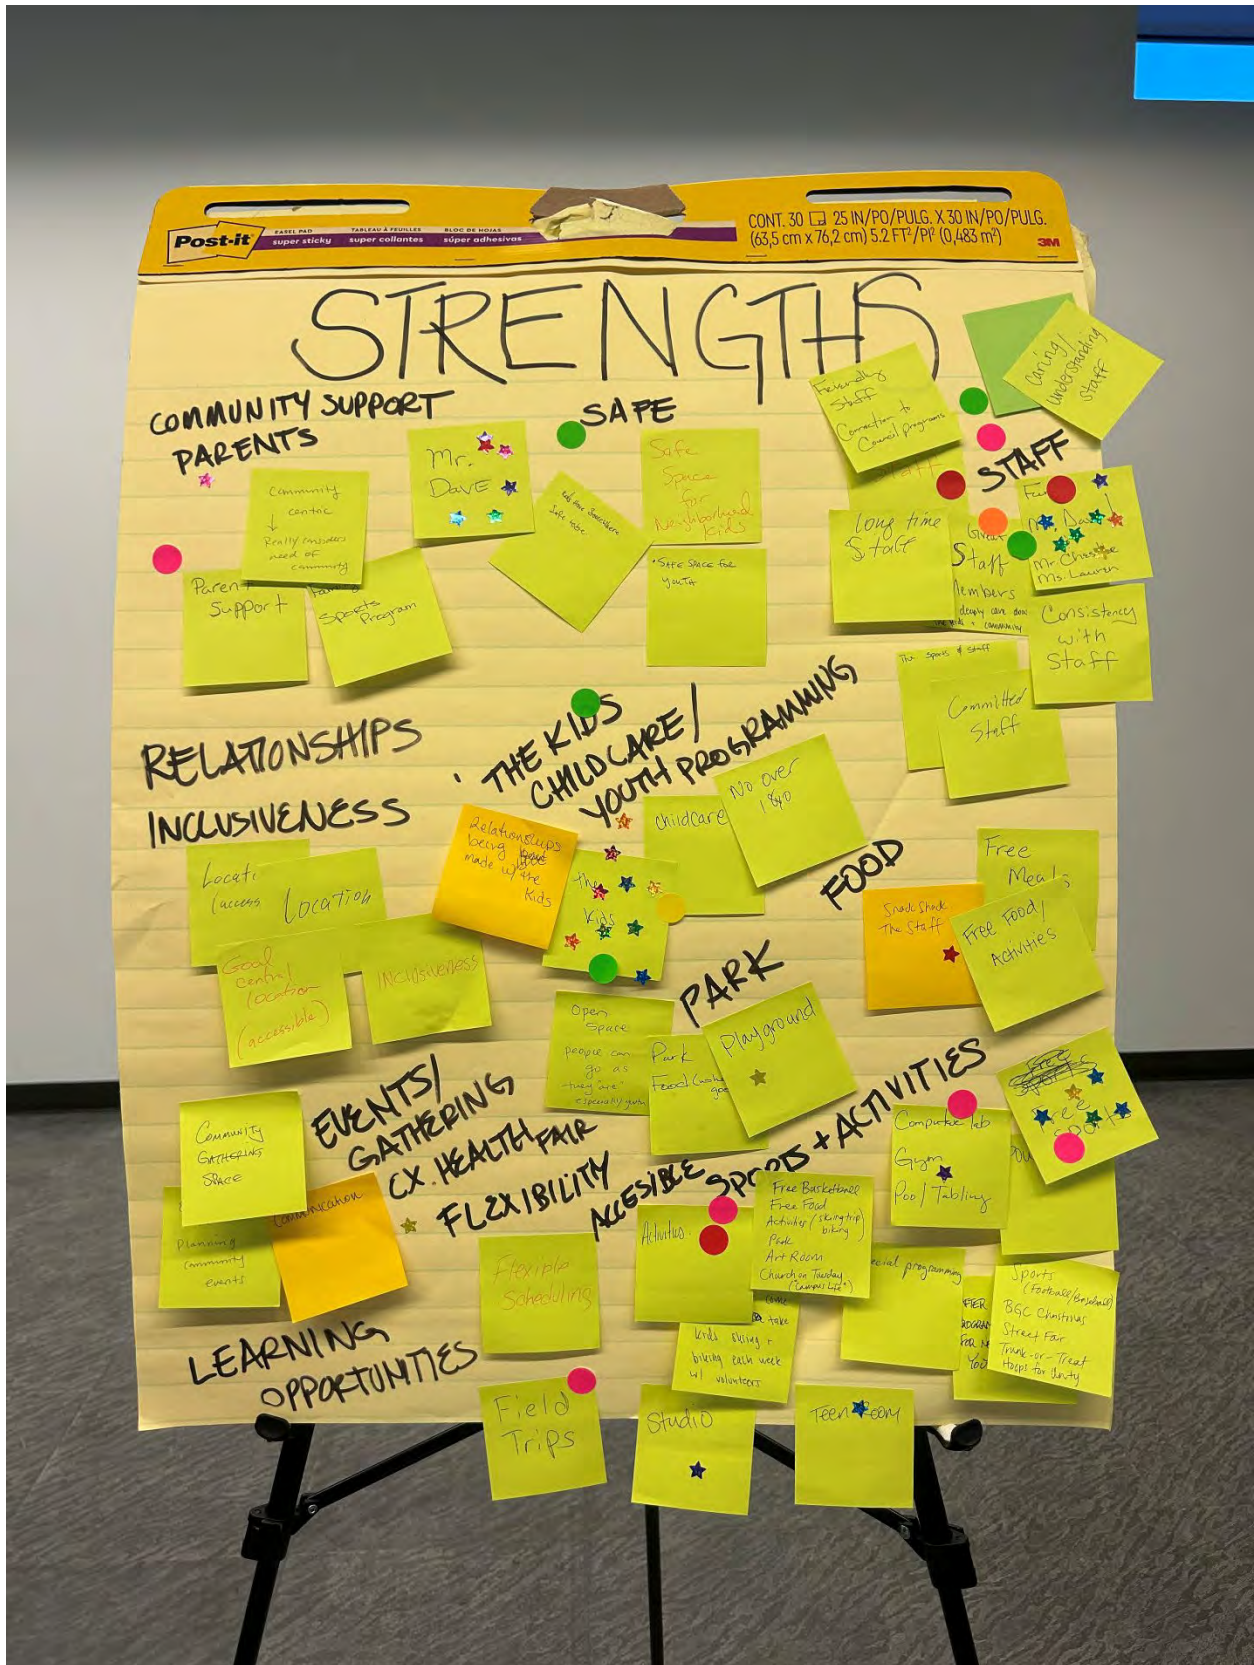 Post-it
EASEL PAD
super sticky
TABLEAU À FEUILLES
super collantes
BLOC DE HOJAS
súper adhesivas
CONT. 30 25 IN/PO/PULG. X 30 IN/PO/PULG.
(63,5 cm x 76,2 cm) 5.2 FT²/PI² (0,483 m²)
3M
STRENGTHS
COMMUNITY SUPPORT
PARENTS
Community
centric
↓
Really considers
need of
community
Parent
Support
Sports
Program
Mr.
Dave
SAFE
Safe
Space
for
Neighborhood
Kids
• SAFE SPACE FOR
YOUTH
Friendly
Staff
Connection to
Council programs
Caring/
Understanding
Staff
STAFF
Staff
long time
Staff
Great
Staff
Members
deeply care
kids + community
Mr. Dave
Ms. Lauren
Consistency
with
Staff
The Sports & Staff
Committed
Staff
RELATIONSHIPS
INCLUSIVENESS
Locati
(access
Location
Good
central
location
(accessible)
INClusiveness
THE KIDS
CHILDCARE/
YOUTH PROGRAMMING
Relationships
being
made w/ the
Kids
the
Kids
childcare
No over
FOOD
Snack Shack
The Staff
Free
Meals
Free Food/
Activities
PARK
Open
Space
people can
go as
"they are"
especially
Park
Food
Playground
EVENTS/
GATHERING
CX. HEALTH FAIR
FLEXIBILITY
Community
GATHERING
SPACE
Planning
community
events
Flexible
Scheduling
ACCESIBLE
SPORTS + ACTIVITIES
Activities
Free Basketball
Free Food
Activities (skiing trip
biking)
Park
Art Room
Church on Tuesday
("Campus Life")
Computer lab
Gym
Pool/Tabling
Free
Sports
take
kids skiing +
biking each week
w/ volunteers
programming
Sports
(Football/Baseball)
BGC Christmas
Street Fair
Trunk-or-Treat
Hoops for Unity
LEARNING
OPPORTUNITIES
Field
Trips
Studio
Teen Room